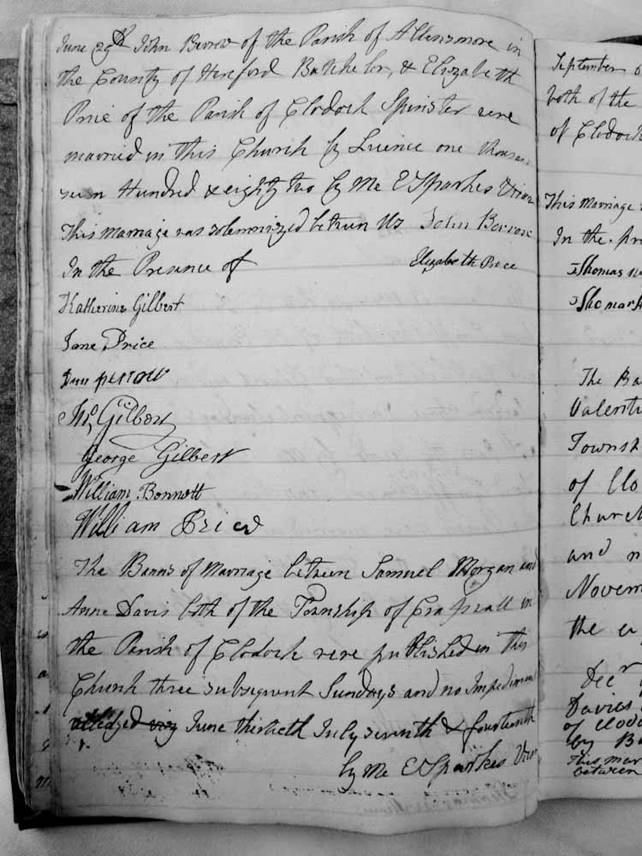 June 29th John Berrow of the Parish of Allensmore in
the County of Hereford Batchelor, & Elizabeth
Price of the Parish of Clodoch Spinster were
married in this Church by Licence one
seven Hundred & eighty two by Me E Sparkes Vicar
This marriage was solemnized between Us John Berrow
Elizabeth Price
In the Presence of
Katherine Gilbert
Jane Price
perrow
Gilbert
George Gilbert
William Bonnott
William Price
The Banns of Marriage between Samuel Morgan and
Anne Davis both of the Township of in
the Parish of Clodoch were published in this
Church three subsequent Sundays and no Impediment
alledged June thirtieth July seventh & fourteenth
by Me E Sparkes Vicar
September
both of the
of Clodoch
This Marriage
In the
Thomas
Thomas
The
Valent
Towns
of Clo
Church
and n
Novem
the
Decr
Davies
of Clod
by B
This mar
between